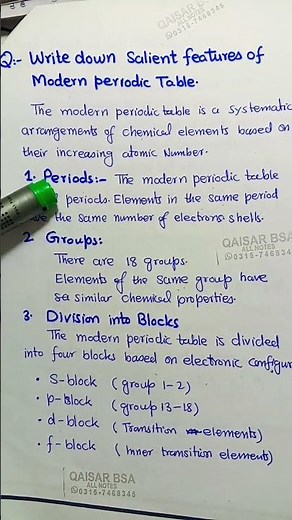 QAISAR B
ALL NOTES
0315-7468345
Q:- Write down Salient features of
Modern periodic Table.
The modern periodic table is a systematic
arrangements of chemical elements based on
their increasing atomic Number.
1. Periods:- The modern periodic table
periods. Elements in the same period
the same number of electrons shells.
2. Groups:
QAISAR BSA
ALL NOTES
0315-7468345
There are 18 groups.
Elements of the same group have
similar chemical properties.
3. Division into Blocks
The modern periodic table is divided
into four blocks based on electronic configur
• S-block (group 1-2)
• p-Block (group 13-18)
• d-block (Transition elements)
• f-block (Inner transition elements)
QAISAR BSA
ALL NOTES
0315-7468345